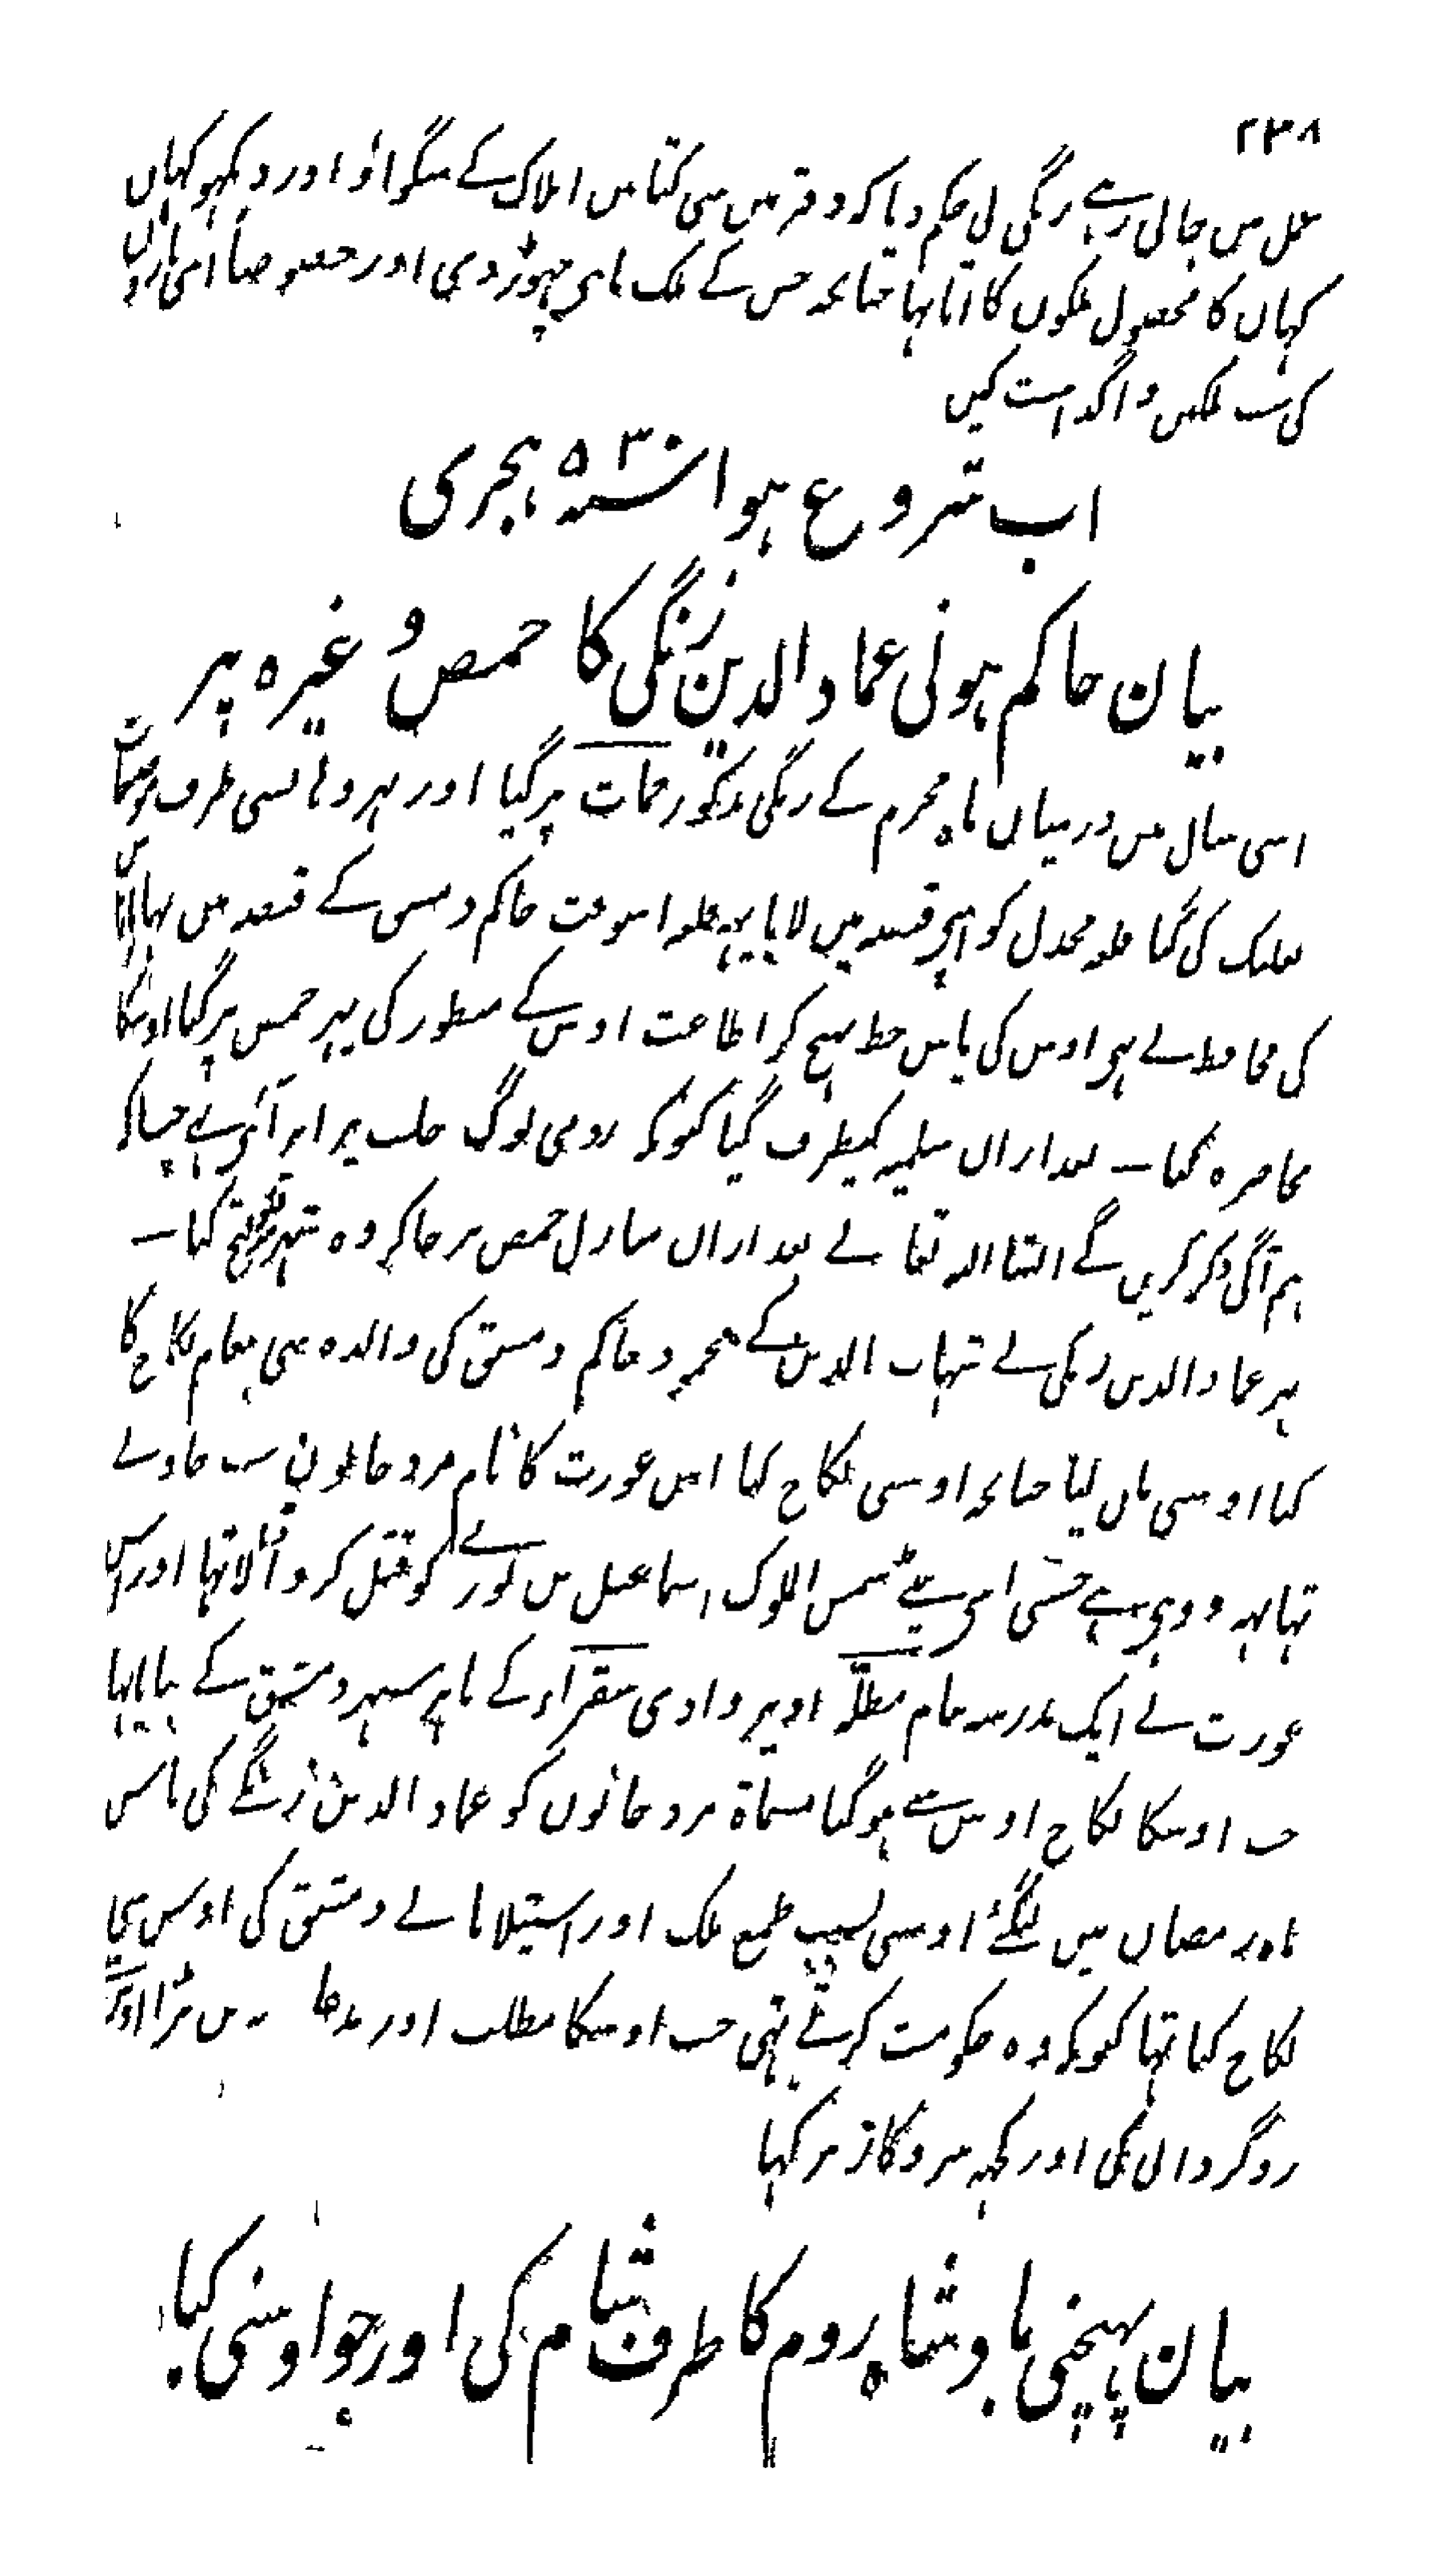 ۲۳۸
عمل میں جاتی رہے زنگی نی حکم دیا کہ دفتر میں سی کتابیں املاک کے منگوائو اور دیکہو کہاں
کہاں کا محصول ملکوں کا آتا تہا چنانچہ جس کے ملک پائی چہوڑ دی اور خصوصاً اسی
کی سب ملکیں واگذاشت کیں
اب شروع ہوا سنہ ۵۳۰ ہجری
بیان حاکم ہونی عماد الدین زنگی کا حمص و غیرہ پر
اسی سال میں درمیان ماہ محرم کے زنگی مذکور حمات پر گیا اور پہر وہانسی طرف
بعلبک کی گیا قلعہ مجدل کو اپنی قبضہ میں لایا یہہ قلعہ اسوقت حاکم دمشق کے قبضہ میں تہا
کی محافظ نے بہی اوس کی پاس خط بہیج کر اطاعت اوس کے منظور کی پہر حمص پر گیا اوسکا
محاصرہ کیا ۔ بعد ازاں سلمیہ کیطرف گیا کیونکہ رومی لوگ حلب پر اتر آئی تہے جیسا کہ
ہم آگی ذکر کریں گے انشا اللہ تعالے بعد ازاں منازل حمص پر جا کر وہ شہر فتح کیا ۔
پہر عماد الدین زنگی نے شہاب الدین کے محمود حاکم دمشق کی والدہ سی پیغام نکاح کا
کیا اوسی مان لیا چنانچہ اوسی نکاح کیا اس عورت کا نام مرد خاتون بنت جاولے
تہا یہہ وہی ہے جسنی اپنی بیٹے شمس الملوک اسماعیل بن توری کو قتل کر ڈالا تہا اور اس
عورت نے ایک مدرسہ بنام معظلّہ اوپر وادی شقراء کے باہر شہر دمشق کے بنایا تہا
جب اوسکا نکاح اوس سے ہو گیا مسماۃ مرد خاتوں کو عماد الدین زنگے کی پاس
ماہ رمضان میں لیگئے اوسی بسبب طمع ملک اور استیلا پانے دمشق کی اوس سی
نکاح کیا تہا کیونکہ وہ حکومت کرتے تہی جب اوسکا مطلب اور مدعا نہ بن پڑا اوس
روگردانی کی اور کہہ سروکار نہ رکہا
بیان پہنچنی بادشاہ روم کا طرف شام کی اور جو اوسنی کیا